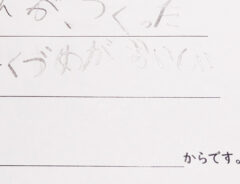 んが、つくった
くづめが おいしい
からです。